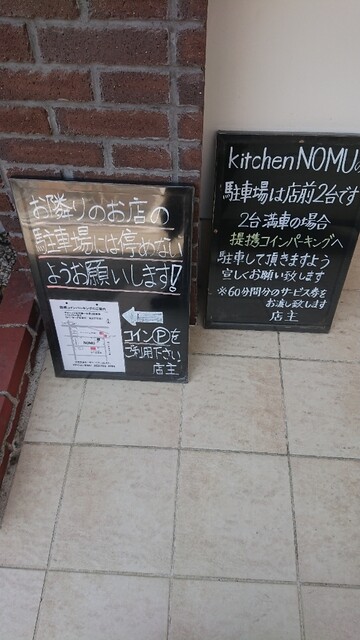 お隣りのお店の
駐車場には停めない
ようお願いします!
コインⓅを
ご利用下さい
店主
kitchen NOMUの
駐車場は店前2台です
2台満車の場合
提携コインパーキングへ
駐車して頂きますよう
宜しくお願い致します
※60分間分のサービス券を
お渡し致します
店主